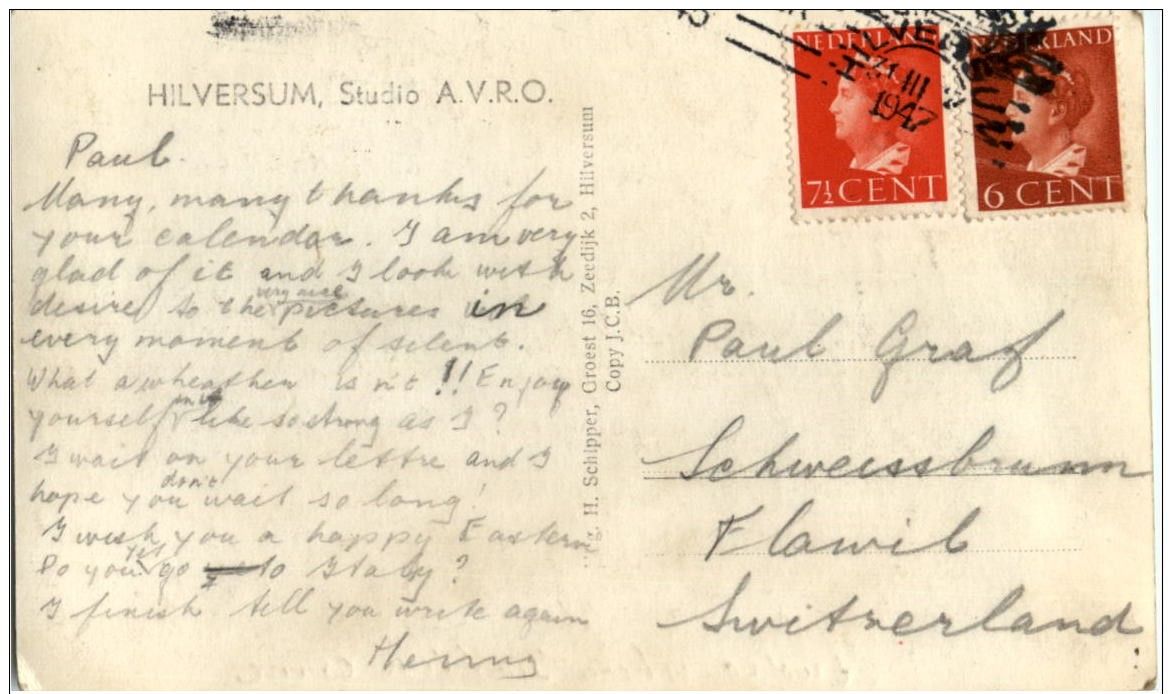 HILVERSUM, Studio A.V.R.O.
Paul.
Many, many thanks for
your calendar. I am very
glad of it and I look with
desire to the very nice pictures in
every moment of silent.
What a wheather is n't !! Enjoy
yourself in it like so strong as I ?
I wait on your lettre and I
hope you don't wait so long!
I wish you a happy Eastern
Do you yet go to Italy?
I finish till you write again
Henny
H. Schipper, Groest 16, Zeedijk 2, Hilversum
Copy J.C.B.
NEDERLAND
7½ CENT
NEDERLAND
6 CENT
HILVERSUM
31 III
1947
Mr.
Paul Graf
Schweissbrunn
Flawil
Switzerland